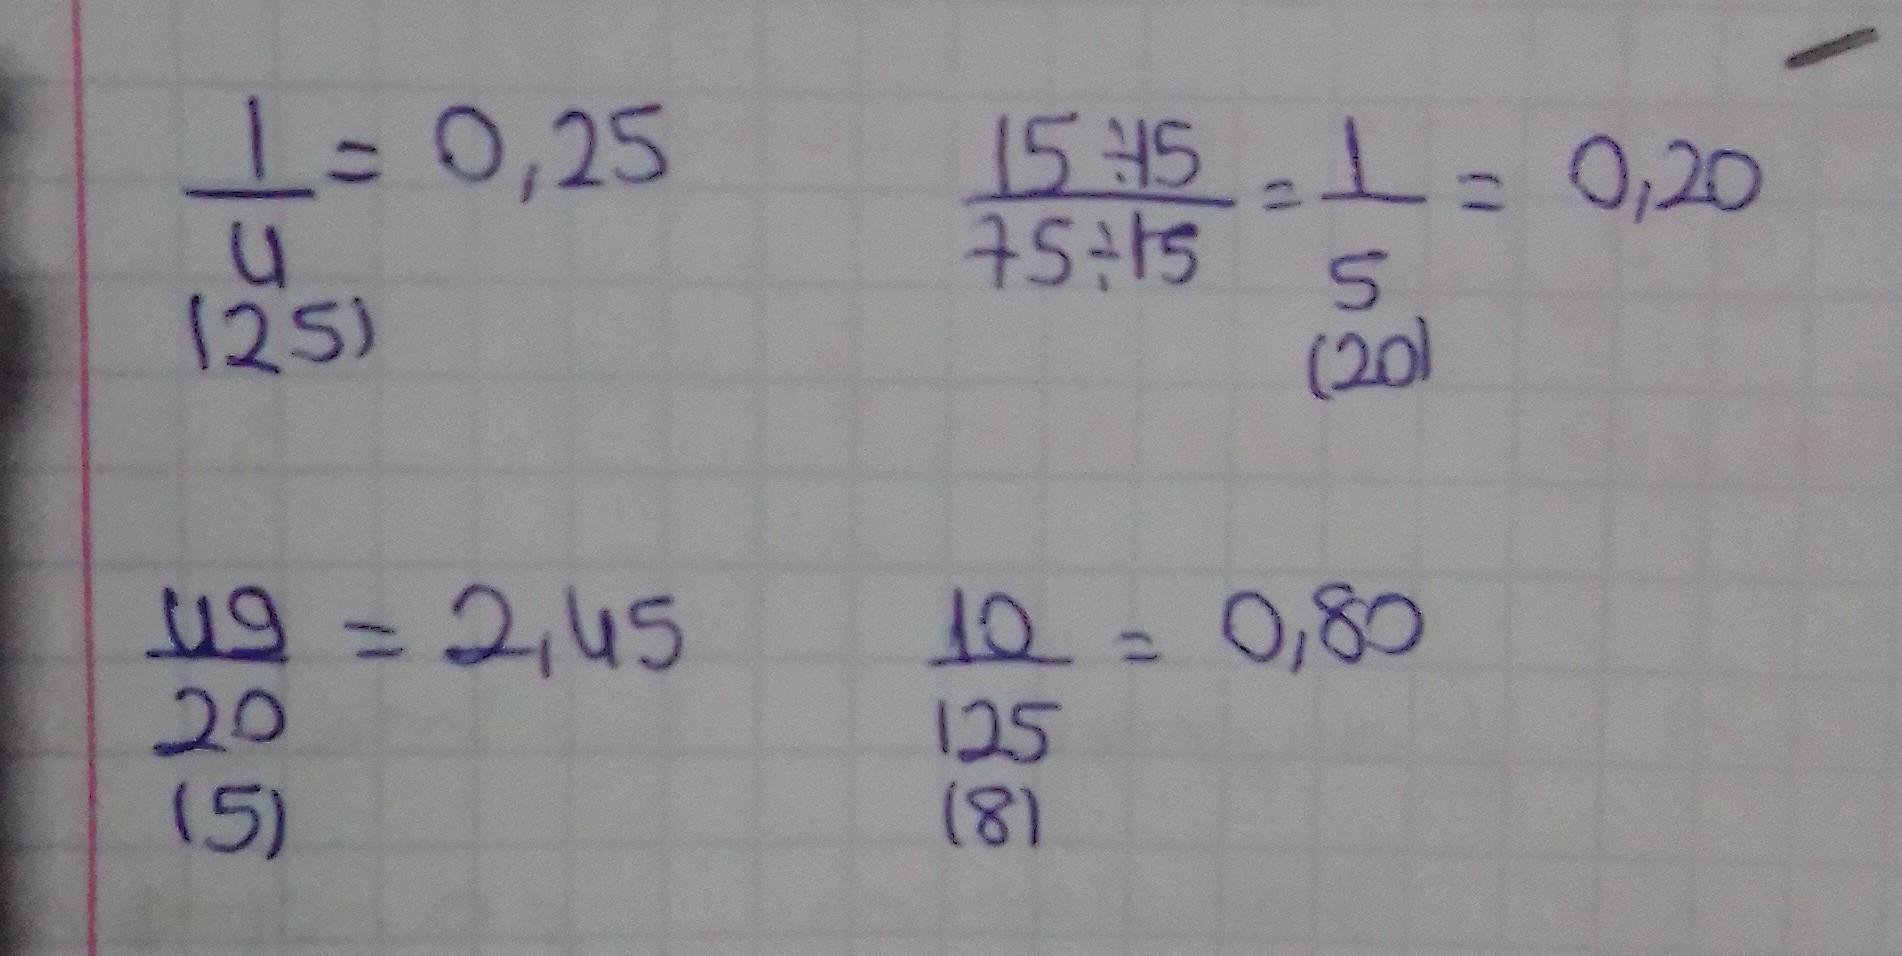 1/4 = 0,25
(25)
15÷15/75÷15 = 1/5 = 0,20
(20)
49/20 = 2,45
(5)
10/125 = 0,80
(8)